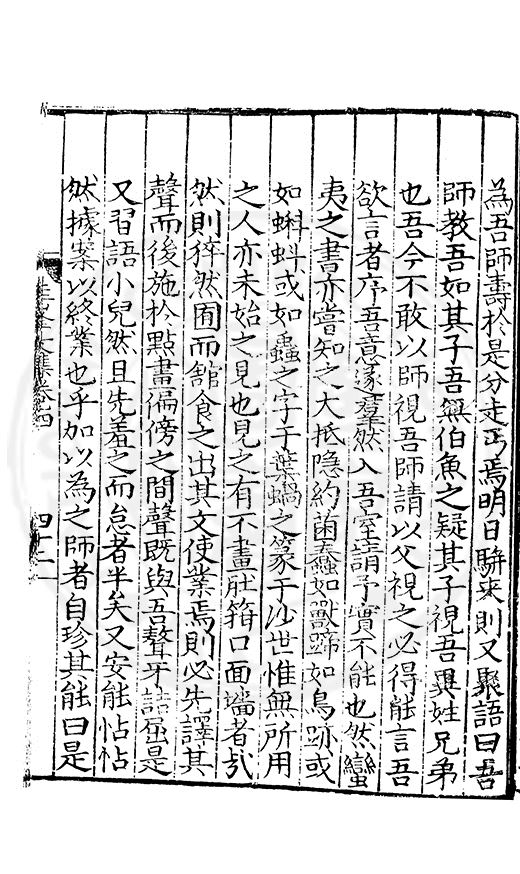 為吾師壽於是分走丐焉明日駢來則又聚語曰吾
師教吾如其子吾無伯魚之疑其子視吾異姓兄弟
也吾今不敢以師視吾師請以父視之必得能言吾
欲言者序吾意遂羣然入吾室請予實不能也然蠻
夷之書亦嘗知之大抵隱約菌蠢如獸蹄如鳥跡或
如蝌蚪或如蟲之字于葉蝸之篆于沙世惟無所用
之人亦未始之見也見之有不畫肚箝口面墻者㢤
然則猝然囿而館食之出其文使業焉則必先譯其
聲而後施於點畫偏傍之間聲既與吾聱牙詰屈是
又習語小兒然且先羞之而怠者半矣又安能怗怗
然據案以終業也乎加以為之師者自珍其能曰是
文集卷四
四十二